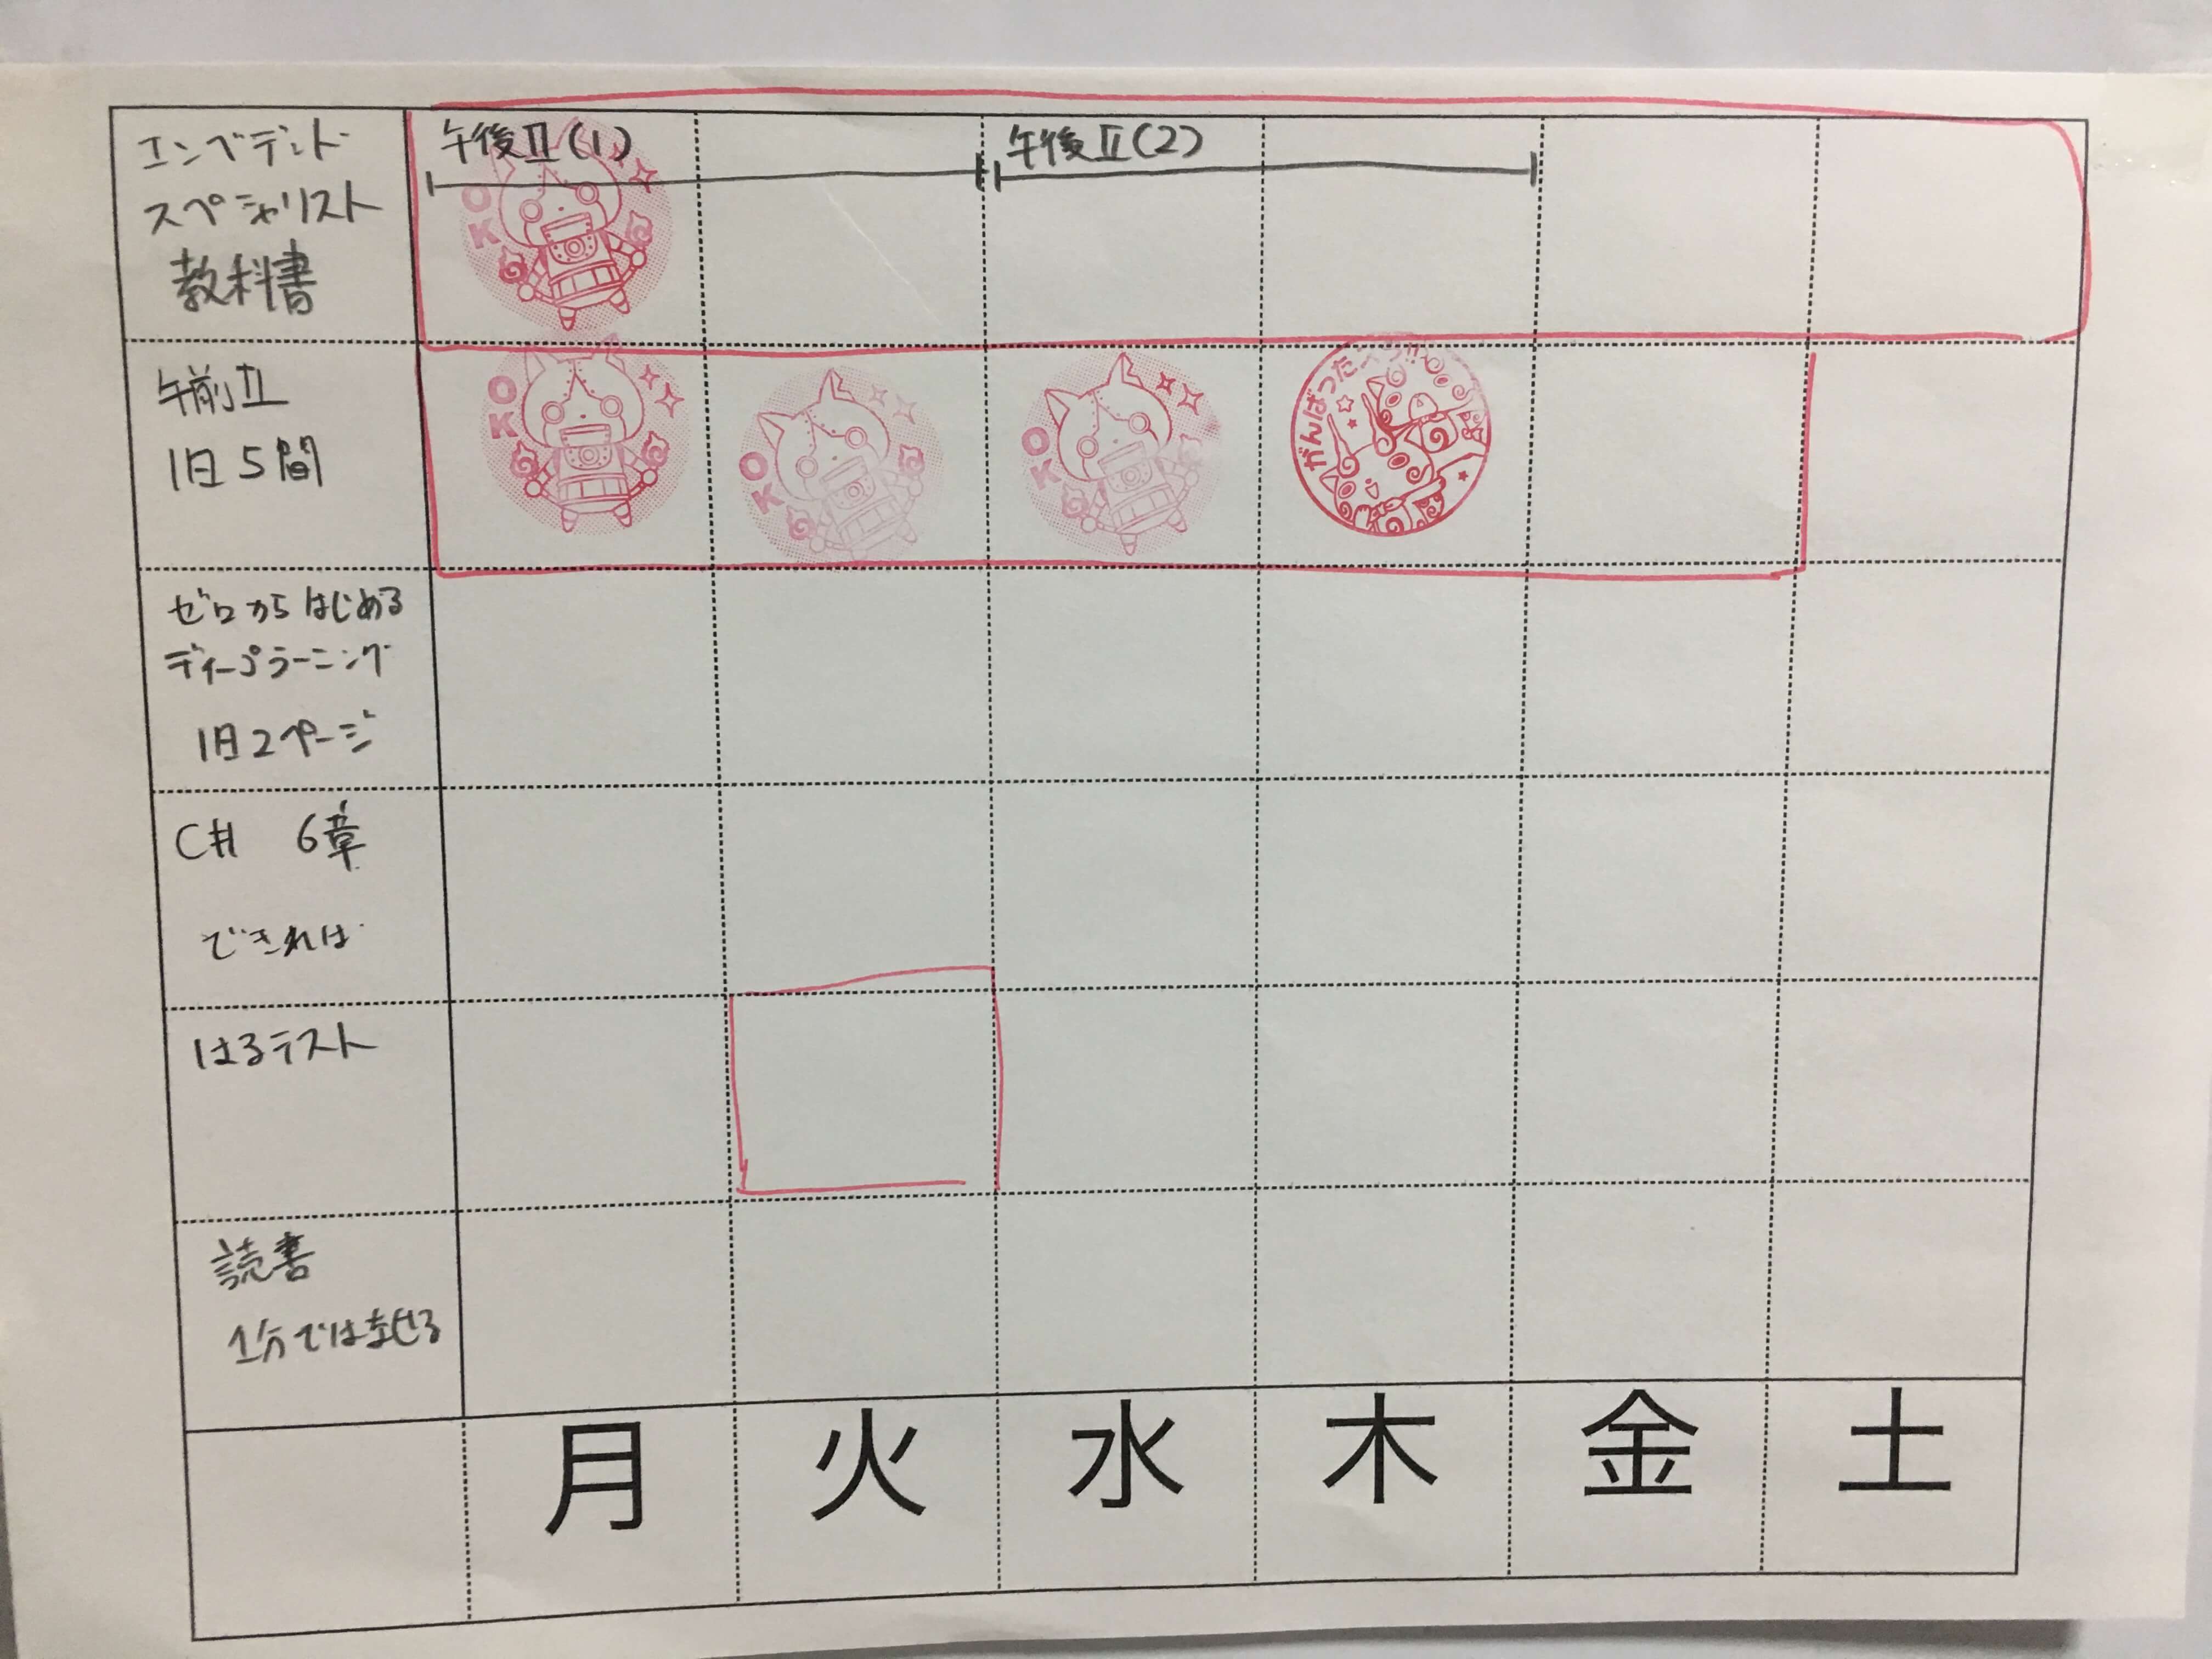 エンベデッド
スペシャリスト
教科書
午後Ⅱ(1)
午後Ⅱ(2)
OK
午前Ⅱ
1日5問
OK
OK
OK
がんばったズラ!!
ゼロからはじめる
ディープラーニング
1日2ページ
C# 6章
できれば
はるテスト
読書
1分ではなせる
月 火 水 木 金 土